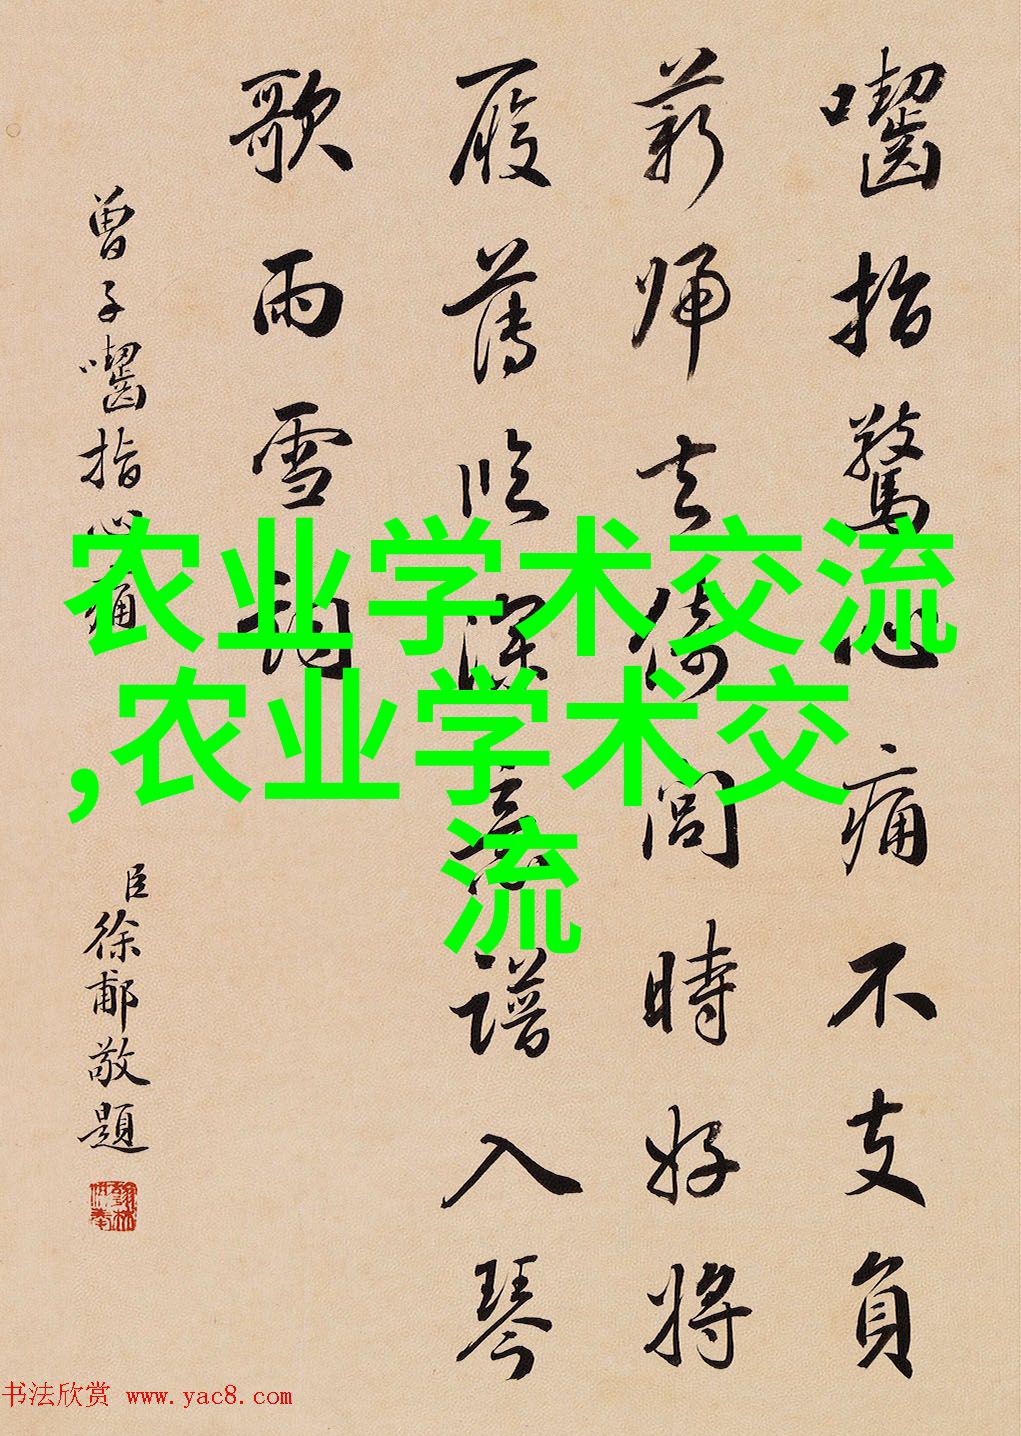 囓指驚心痛不支負
薪歸去倚閭時好將
履薄臨深意譜入琴
歌雨雪
曾子囓指心痛
臣徐郙敬題
农业学术交流
,农业学术交
流
书法欣赏 www.yac8.com